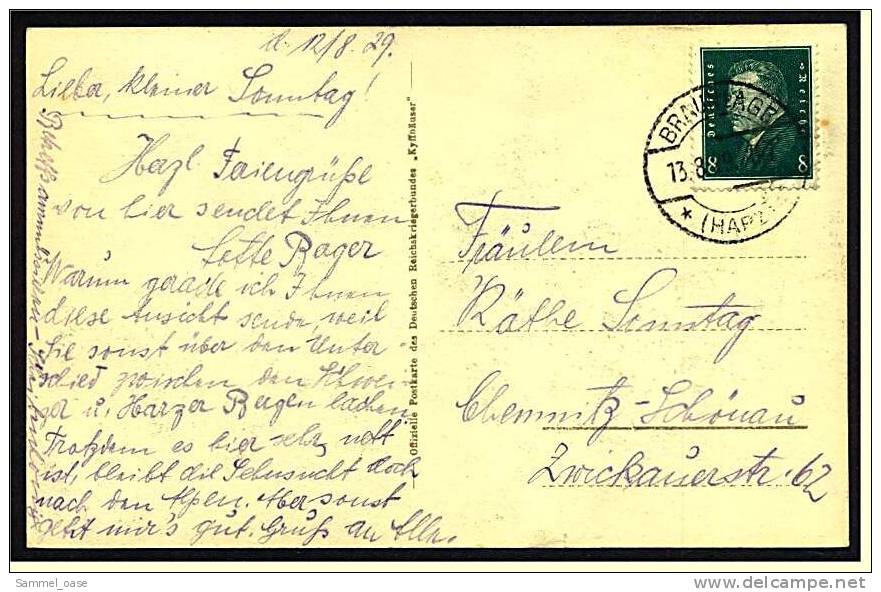 d. 12/8. 29.
Lieber, kleiner Sonntag!
Herzl. Feriengrüße
von hier sendet Ihnen
Lotte Rager
Warum gerade ich Ihnen
diese Ansicht sende, weil
Sie sonst über den Unter-
schied zwischen den
u. Harzer Bergen lachen.
Trotzdem es hier sehr nett
ist, bleibt die Sehnsucht doch
nach den Alpen. Aber sonst
geht mir's gut. Gruß an Alle.
Offizielle Postkarte des Deutschen Reichskriegerbundes „Kyffhäuser"
Deutsches Reich
8 8
BRAUNLAGE
13.8
* (HARZ)
Fräulein
Käthe Sonntag
Chemnitz-Schönau
Zwickauerstr. 62
Sammel_oase
www.delcampe.net